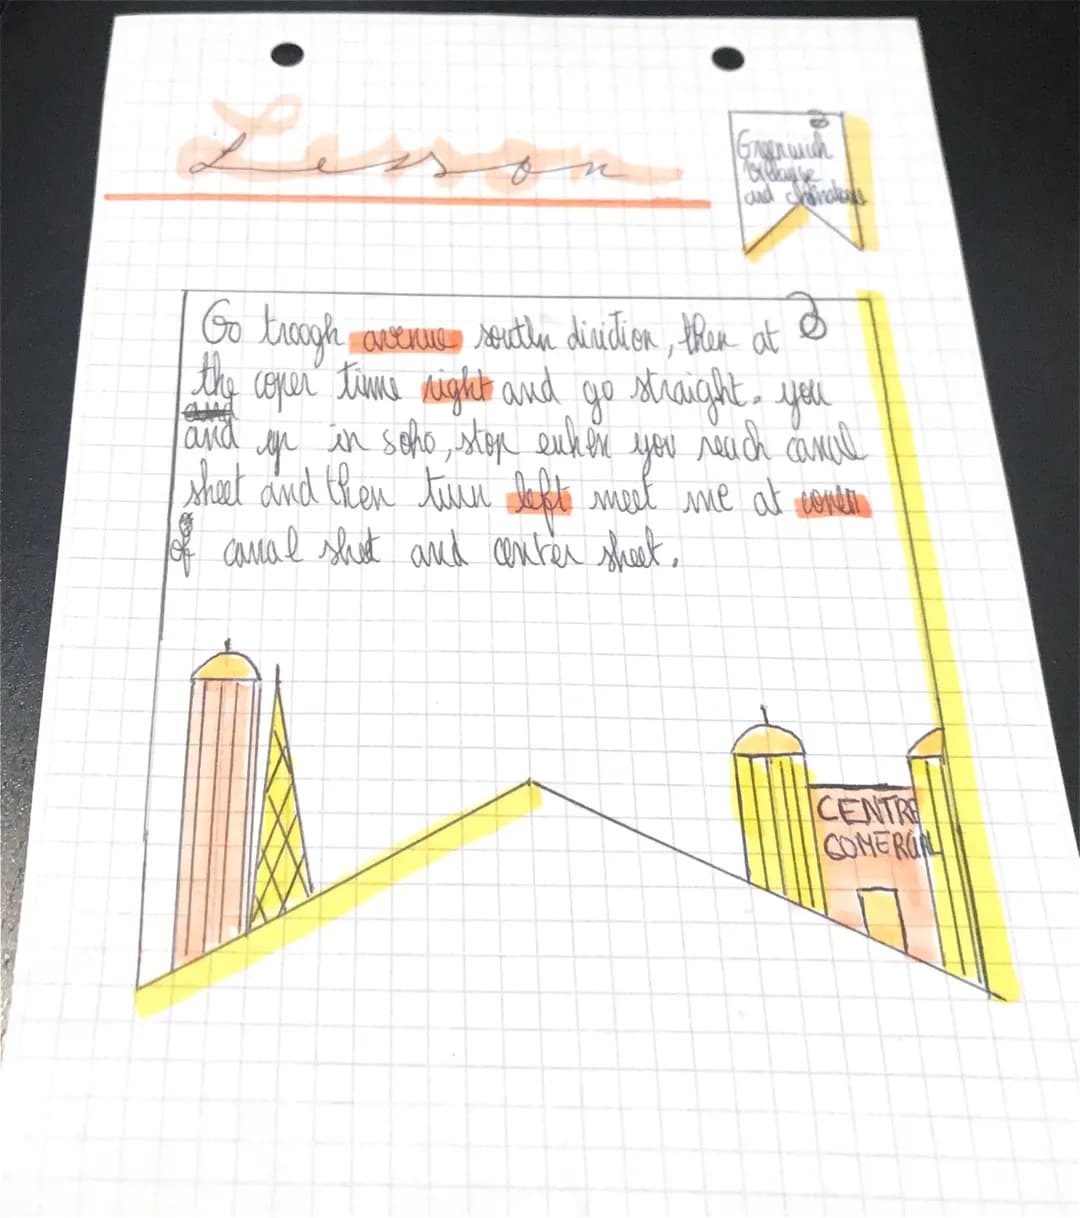 Lesson
Greenwich
and
Go troogh avenue south dirition, then at
the coner time right and go straight. you
and up in soho, stop euhen you reach canal
sheet and then turn left meet me at conen
of canal shet and center sheet.
CENTRE
COMERCIAL